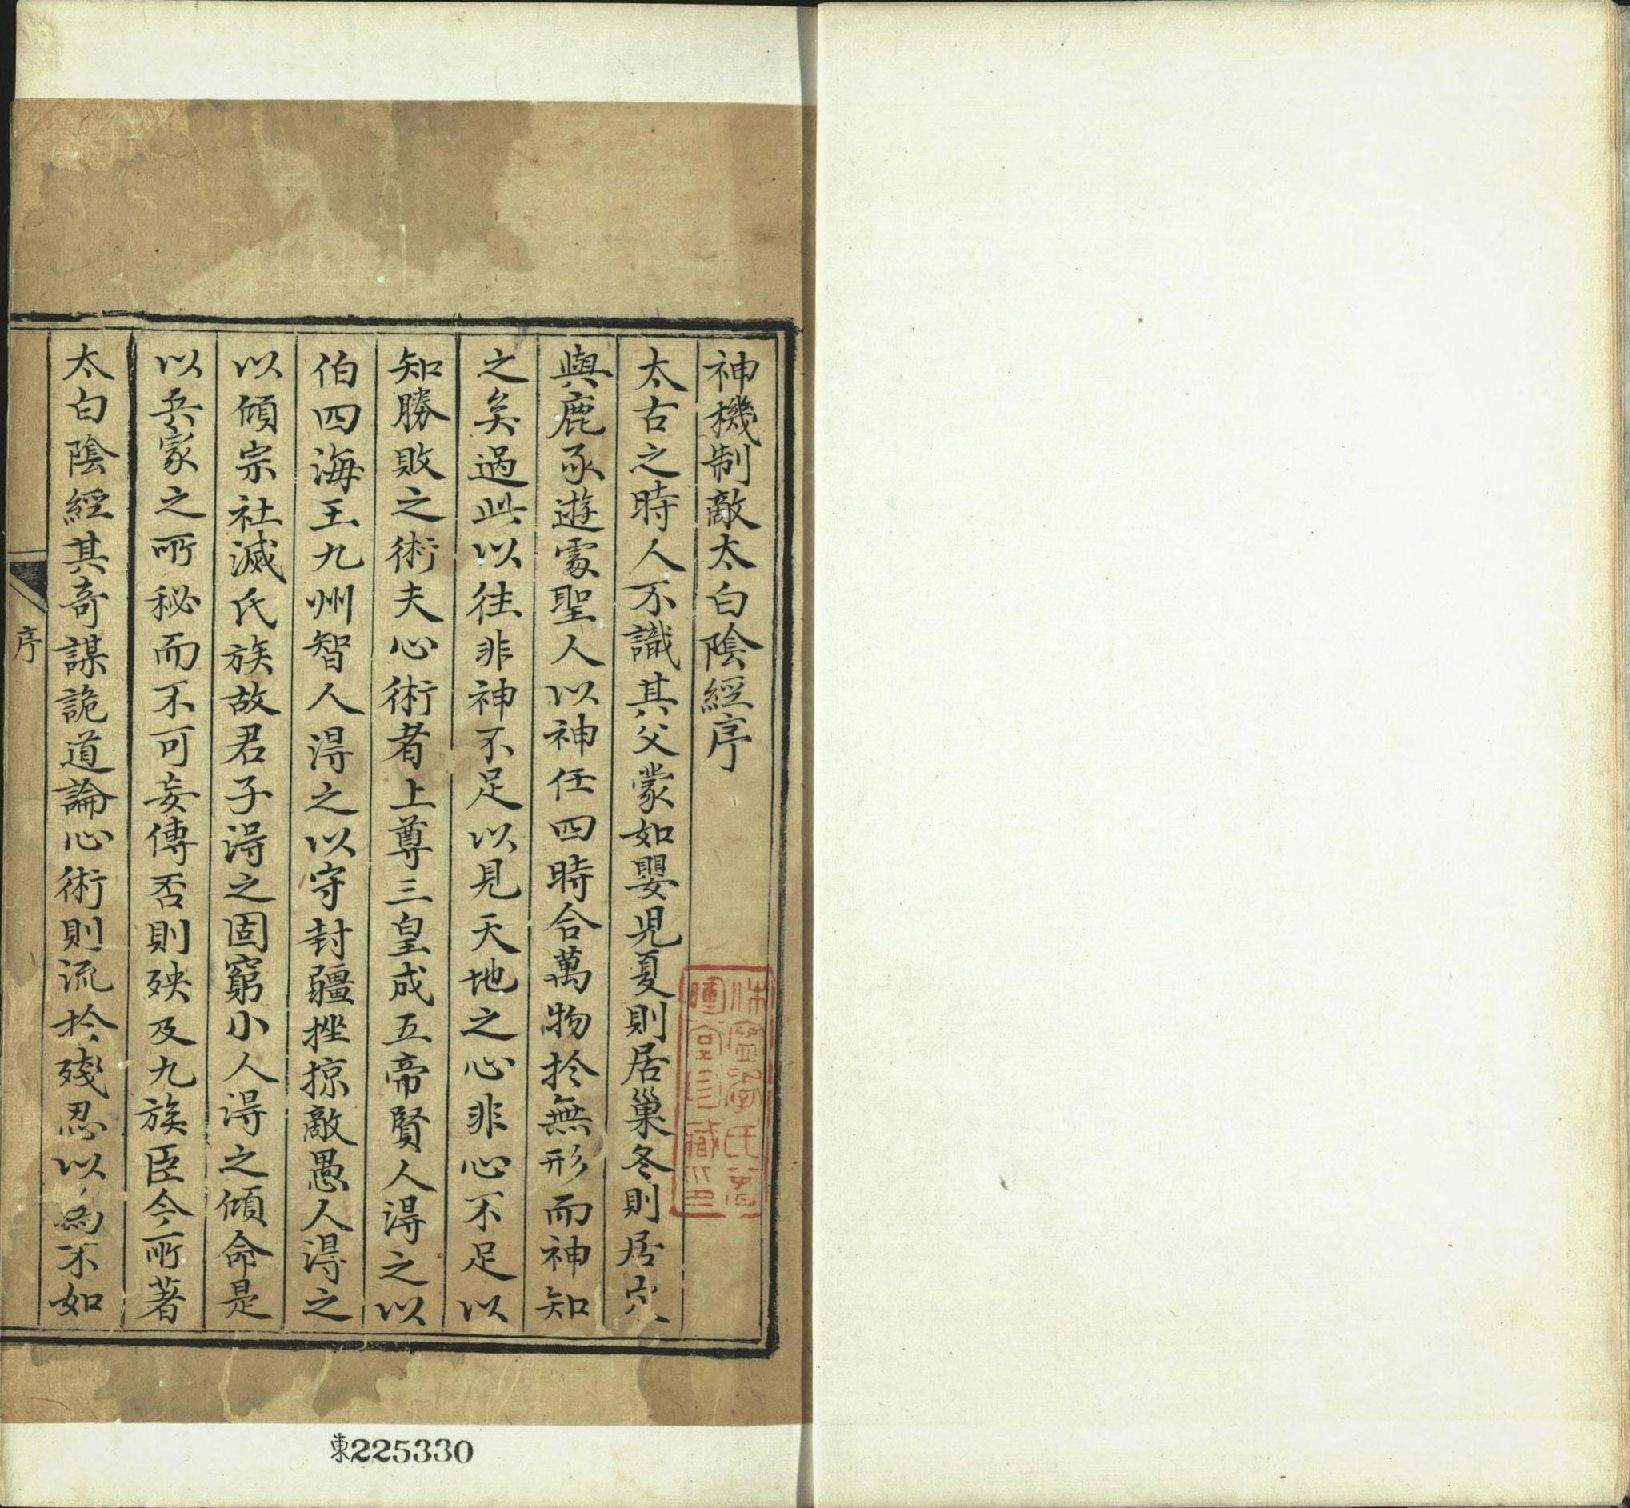 神機制敵太白陰經序
太古之時人不識其父蒙如嬰兒夏則居巢冬則居穴
與鹿豕遊處聖人以神任四時合萬物於無形而神知
之矣過此以往非神不足以見天地之心非心不足以
知勝敗之術夫心術者上尊三皇成五帝賢人得之以
伯四海王九州智人得之以守封疆挫掠敵愚人得之
以傾宗社滅氏族故君子得之固窮小人得之傾命是
以兵家之所秘而不可妄傳否則殃及九族臣今所著
太白陰經其奇謀詭道論心術則流於殘忍以為不如
序
東225330